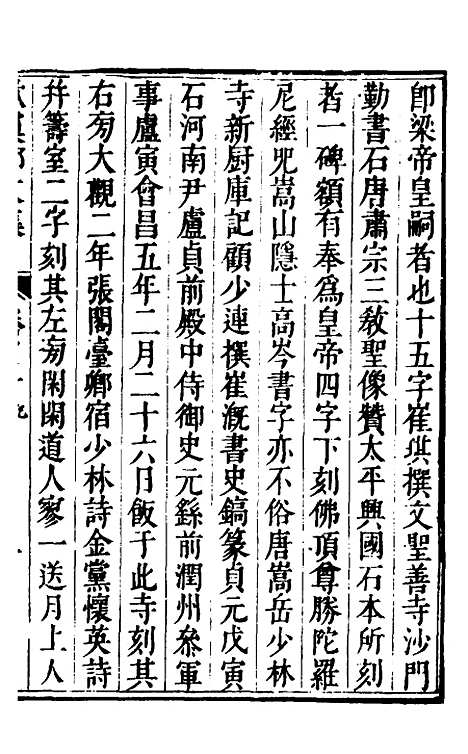 卽梁帝皇嗣者也十五字崔琪撰文聖善寺沙門
勤書石唐肅宗三敎聖像贊太平興國石本所刻
者一碑額有奉爲皇帝四字下刻佛頂尊勝陀羅
尼經咒嵩山隱士高岑書字亦不俗唐嵩岳少林
寺新厨庫記顧少連撰崔漑書史鎬篆貞元戊寅
石河南尹盧貞前殿中侍御史元繇前潤州叅軍
事盧寅會昌五年二月二十六日飯于此寺刻其
右旁大觀二年張閣臺卿宿少林詩金黨懷英詩
幷籌室二字刻其左旁閑閑道人寥一送月上人